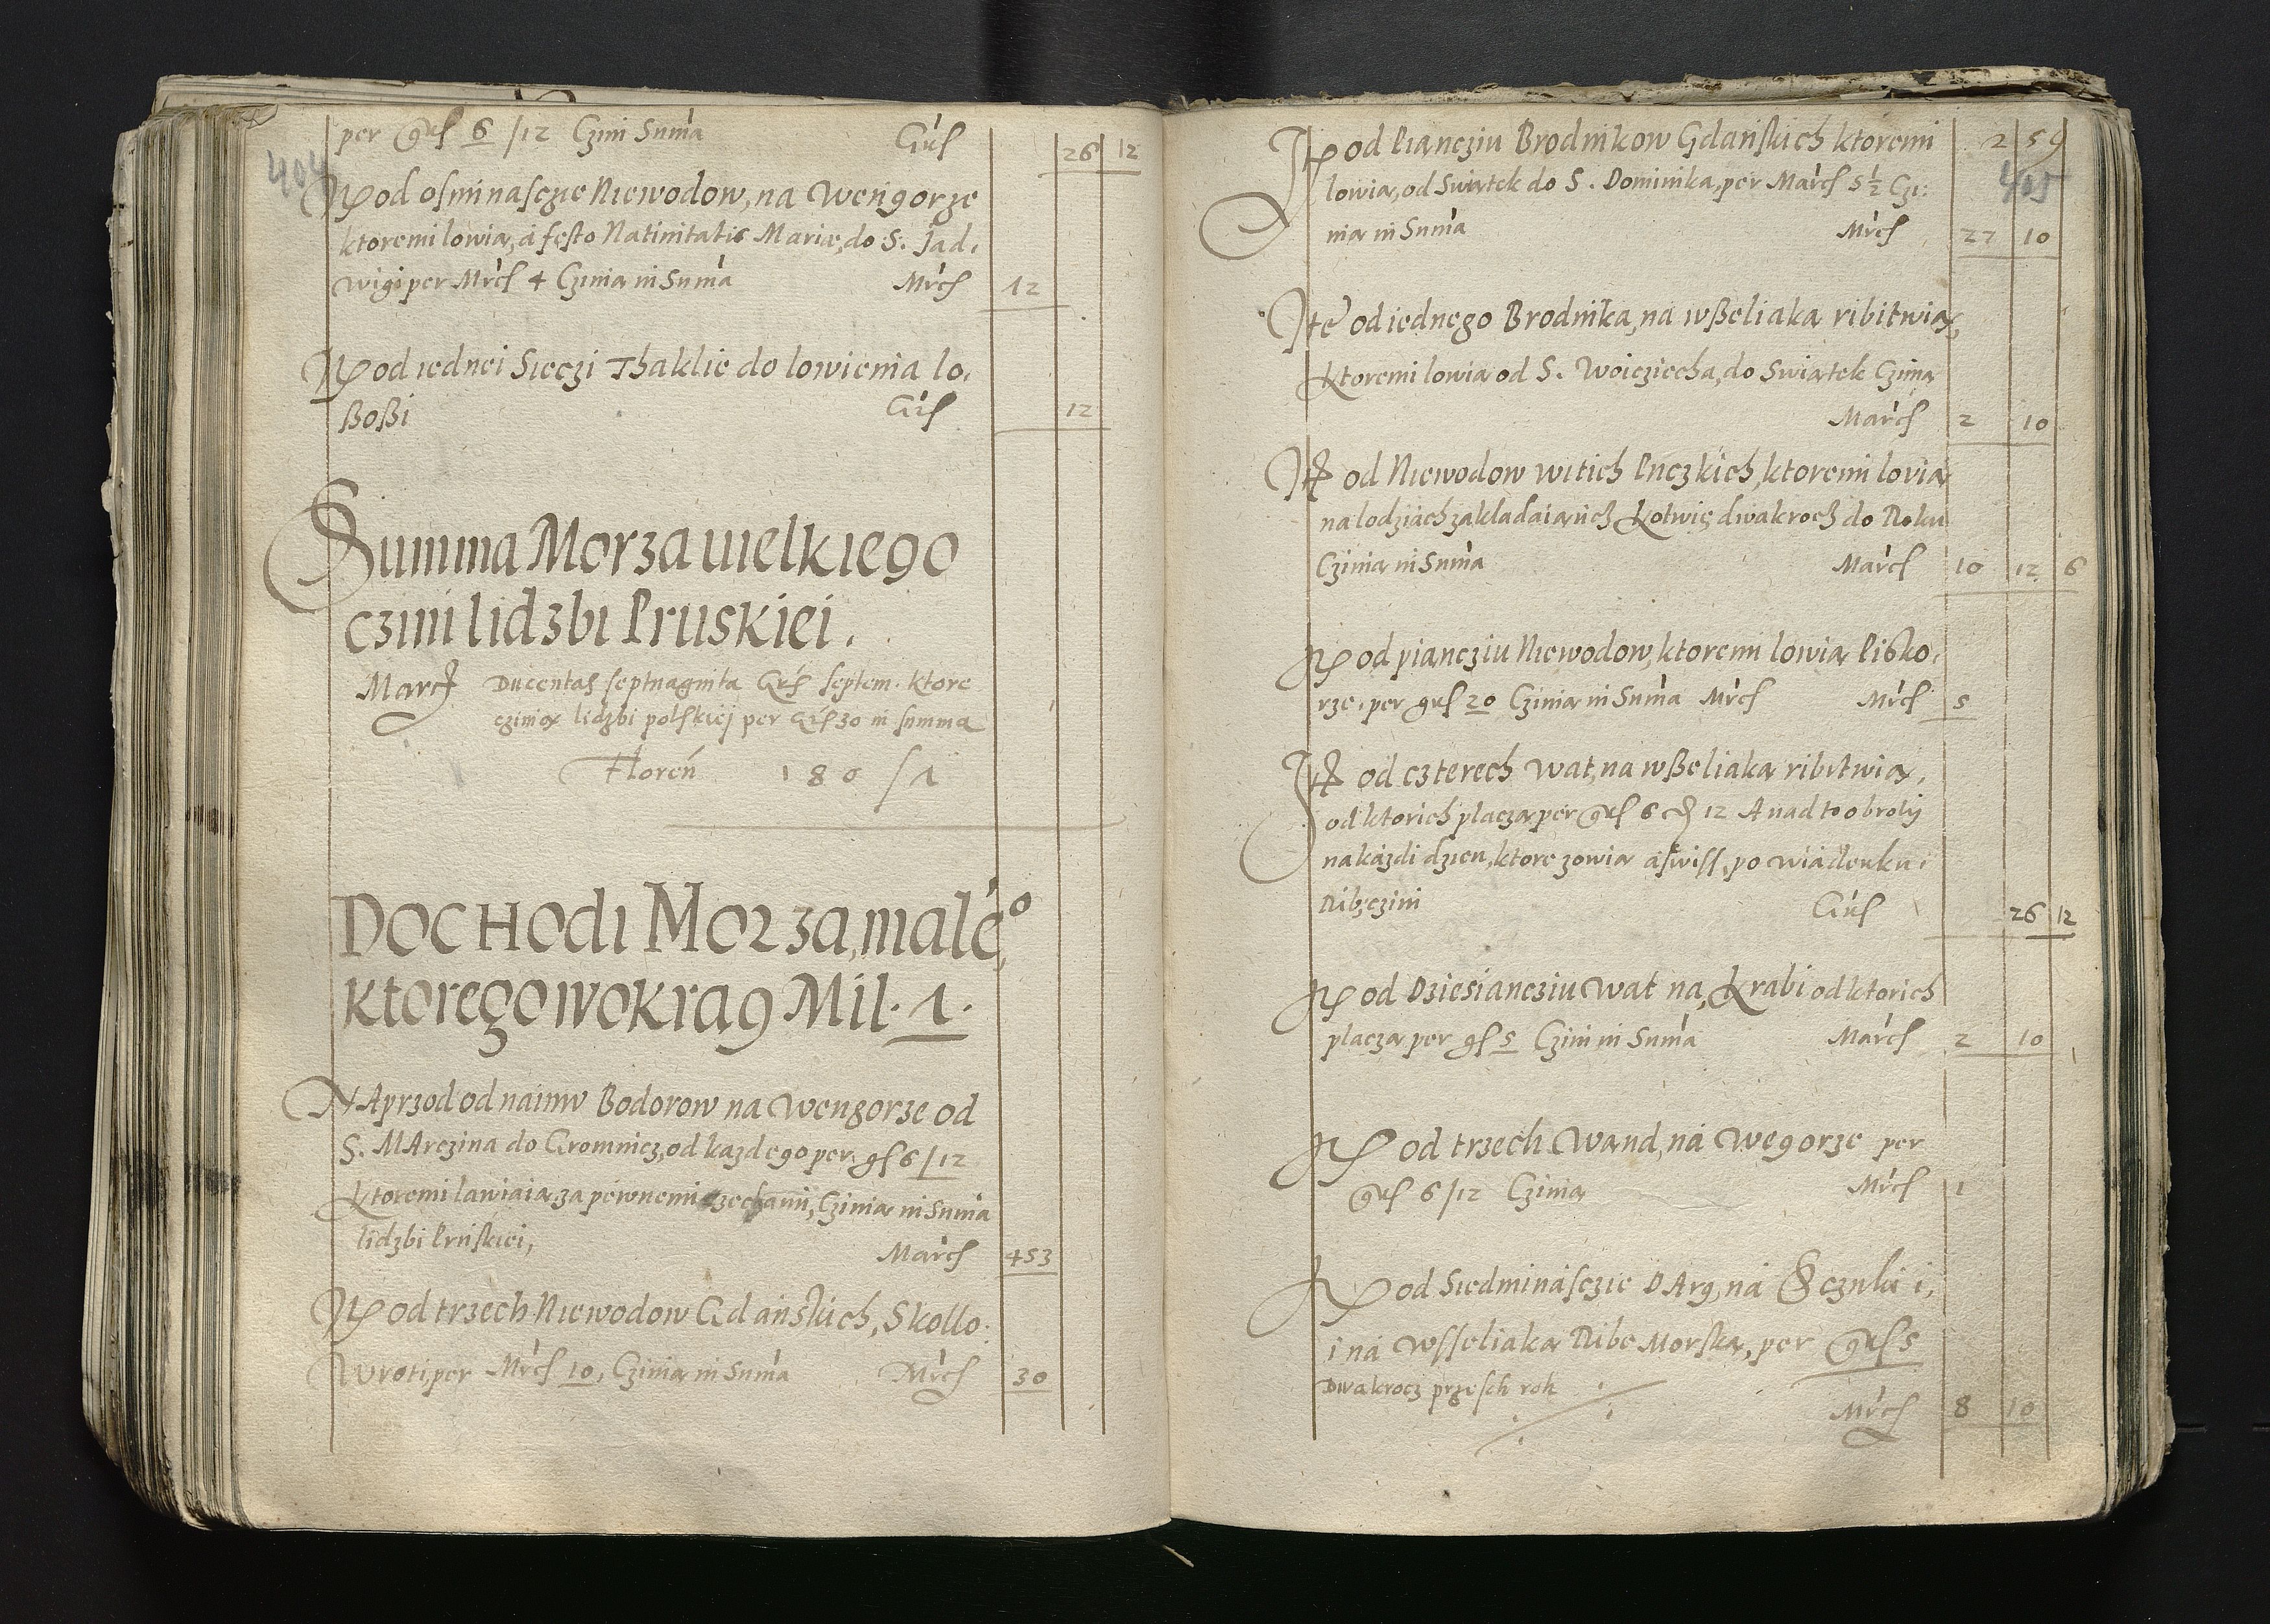 404
per grs 6 /12 Czini Suma Grs 26 12
It od osminasczie Niewodow, na Wengorze
ktoremi lowią, a festo Natiuitatis Mariæ, do S. Jad.
wigi per Mrcs 4 Czinią in Suma Mrcs 12
It od iednei Sieczi Thaklie do lowienia lo.
ßoßi Grs 12
Summa Morza wielkiego
czini lidzbi Pruskiei.
Marcs Ducentas septuaginta Grs septem. ktore
czinią lidzbi polskiej per Grs 30 in summa
Floreń 180 / 1
DOCHOdi Morza, male⁰,
ktorego wokrąg Mil. 1.
NAprzod od naimw Bodorow na Wengorze od
S. MArczina do Gromnicz, od kazdego per gs 6 /12
ktoremi lawiaią za pewnemi czechami, Czinią in Suma
lidzbi Pruskiei, Marcs 453
It od trzech Niewodow Gdańskich, Skollo.
wroti, per Mrcs 10, Czinią in Suma Mrcs 30
259
405
It od Piancziu Brodnikow Gdańskich ktoremi
lowią, od Swiątek do S. Dominika, per Marcs 5½ Czi:
nią in Suma Mrcs 27 10
Ite od iednego Brodnika, na wßeliaką ribitwią,
ktoremi lowią od S. Woicziecha, do Swiątek Czinią
Marcs 2 10
It od Niewodow witich Puczkich, ktoremi lovią
na lodziach zakladaiąnich Kotwię dwakroch do Roku
Czinią in Suma Marcs 10 12 6
It od piancziu Niewodow, ktoremi lowią Pisko.
rze. per grs 20 Czinią in Suma Mrcs Mrcs 5
It od czterech Wat, na wßeliaką ribitwią,
od ktorich placzą per grs 6 ₰ 12 A nad to obroti
na kazdi dzien, ktore zowią aswiss, po wiadenku.
Rib, czini Grs 26 12
It od Dziesiancziu Wat na, Krabi od ktorich
placzą per gs 5 Czini in Suma Marcs 2 10
It od trzech Wand, na Wegorze per
grs 6 /12 Czinią Mrcs 1
It od Siedminasczie DArg, na Sczuki i,
i na Wsseliaką Ribe Morską, per grs 5
Dwakrocz przesch rok
Mrcs 8 10